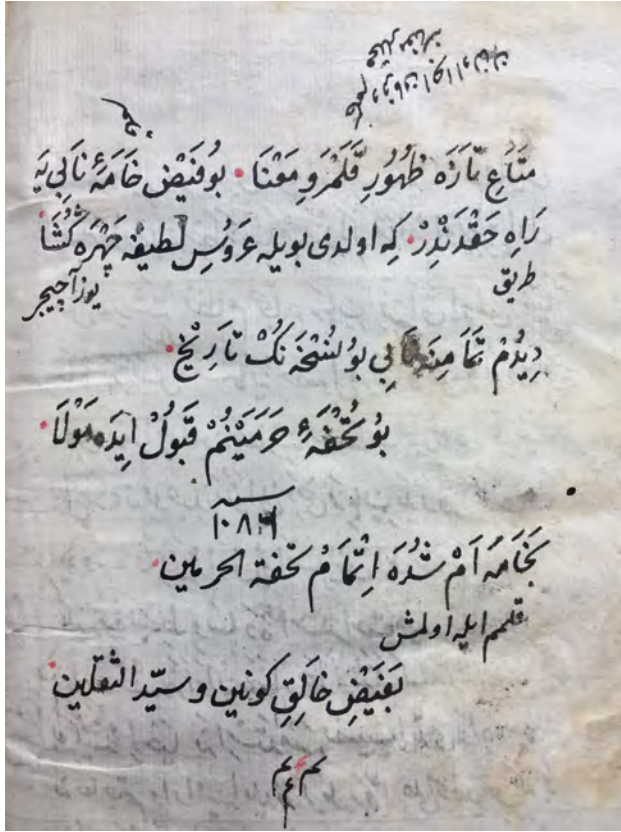 متاع تازه ظهور قلمرو معنا · بو فیض خامهٔ نابی یه
راه حقدندر · که اولدی بویله عروس لطیفه چهره گشا
طریق
یوز آچیجر
دیدم تمامنه نابی بو نسخه نک تاریخ ·
بو تحفهٔ حرمینم قبول ایده مولا ·
سنه
بخامه ام شده اتمام تحفة الحرمین ·
قلمم ایله اولمش
بفیض خالق کونین و سید الثقلین ·